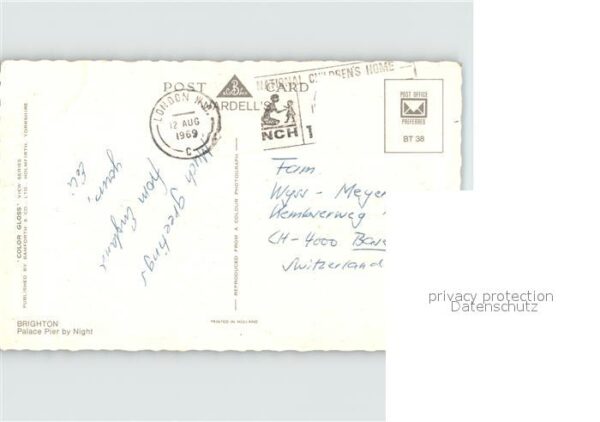 POST CARD
B
WARDELL'S
LONDON
12 AUG
1969
C
NATIONAL CHILDREN'S HOME
NCH
POST OFFICE
PREFERRED
BT 38
"COLOR GLOSS" VIEW SERIES
PUBLISHED BY BAMFORTH & CO. LTD. HOLMFIRTH, YORKSHIRE
Much greetings
from England
yours,
REPRODUCED FROM A COLOUR PHOTOGRAPH
Fam.
Wyss - Meyer
CH-4000
Switzerland
BRIGHTON
Palace Pier by Night
PRINTED IN HOLLAND
privacy protection
Datenschutz